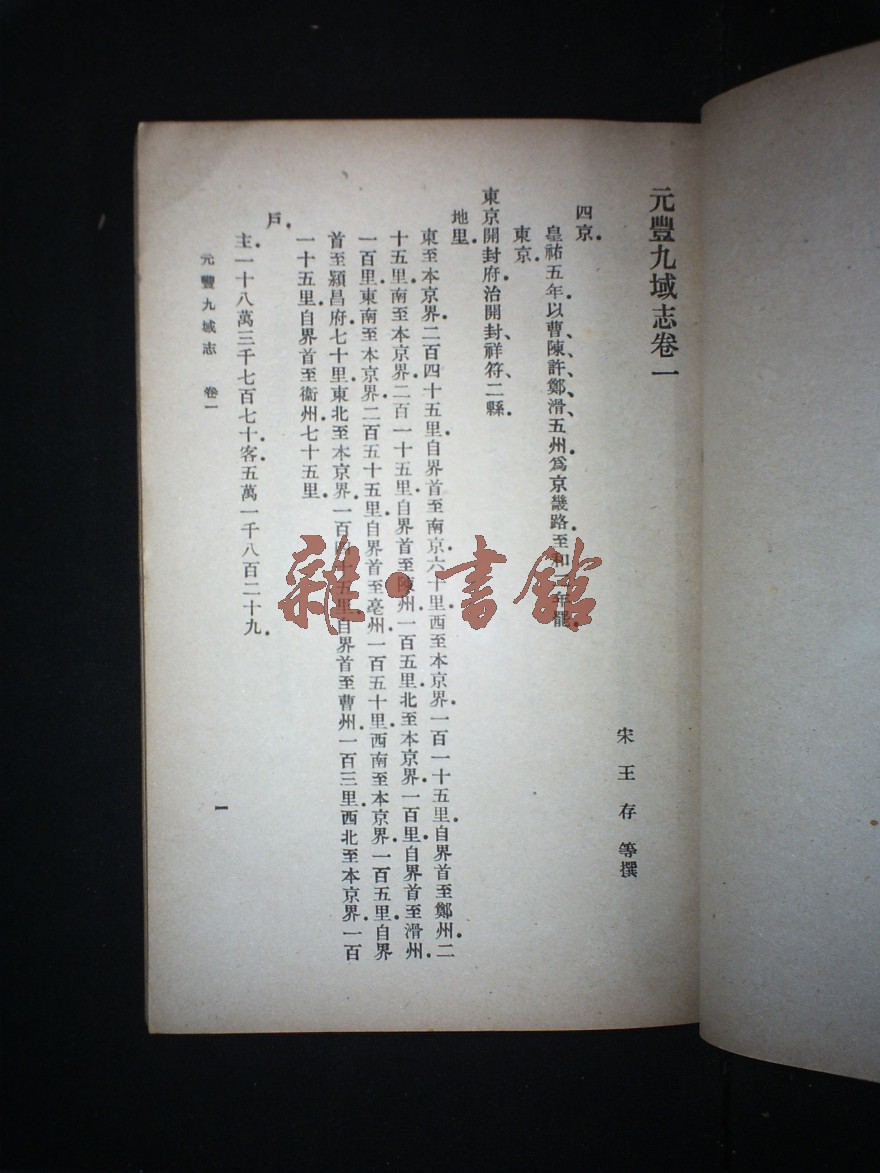 元豐九域志卷一
宋 王 存 等撰
四京。
皇祐五年。以曹、陳、許、鄭、滑五州。爲京畿路。至和二年罷。
東京。
東京開封府。治開封、祥符、二縣。
地里。
東至本京界二百四十五里。自界首至南京六十里。西至本京界。一百一十五里。自界首至鄭州。二
十五里。南至本京界。二百一十五里。自界首至陳州。一百五里。北至本京界。一百里。自界首至滑州。
一百里。東南至本京界。二百五十五里。自界首至亳州。一百五十里。西南至本京界。一百五里。自界
首至潁昌府七十里。東北至本京界。一百四十五里。自界首至曹州。一百三里。西北至本京界。一百
一十五里。自界首至衞州。七十五里。
戶。
主。一十八萬三千七百七十。客。五萬一千八百二十九。
元豐九域志 卷一
一
雜·書館